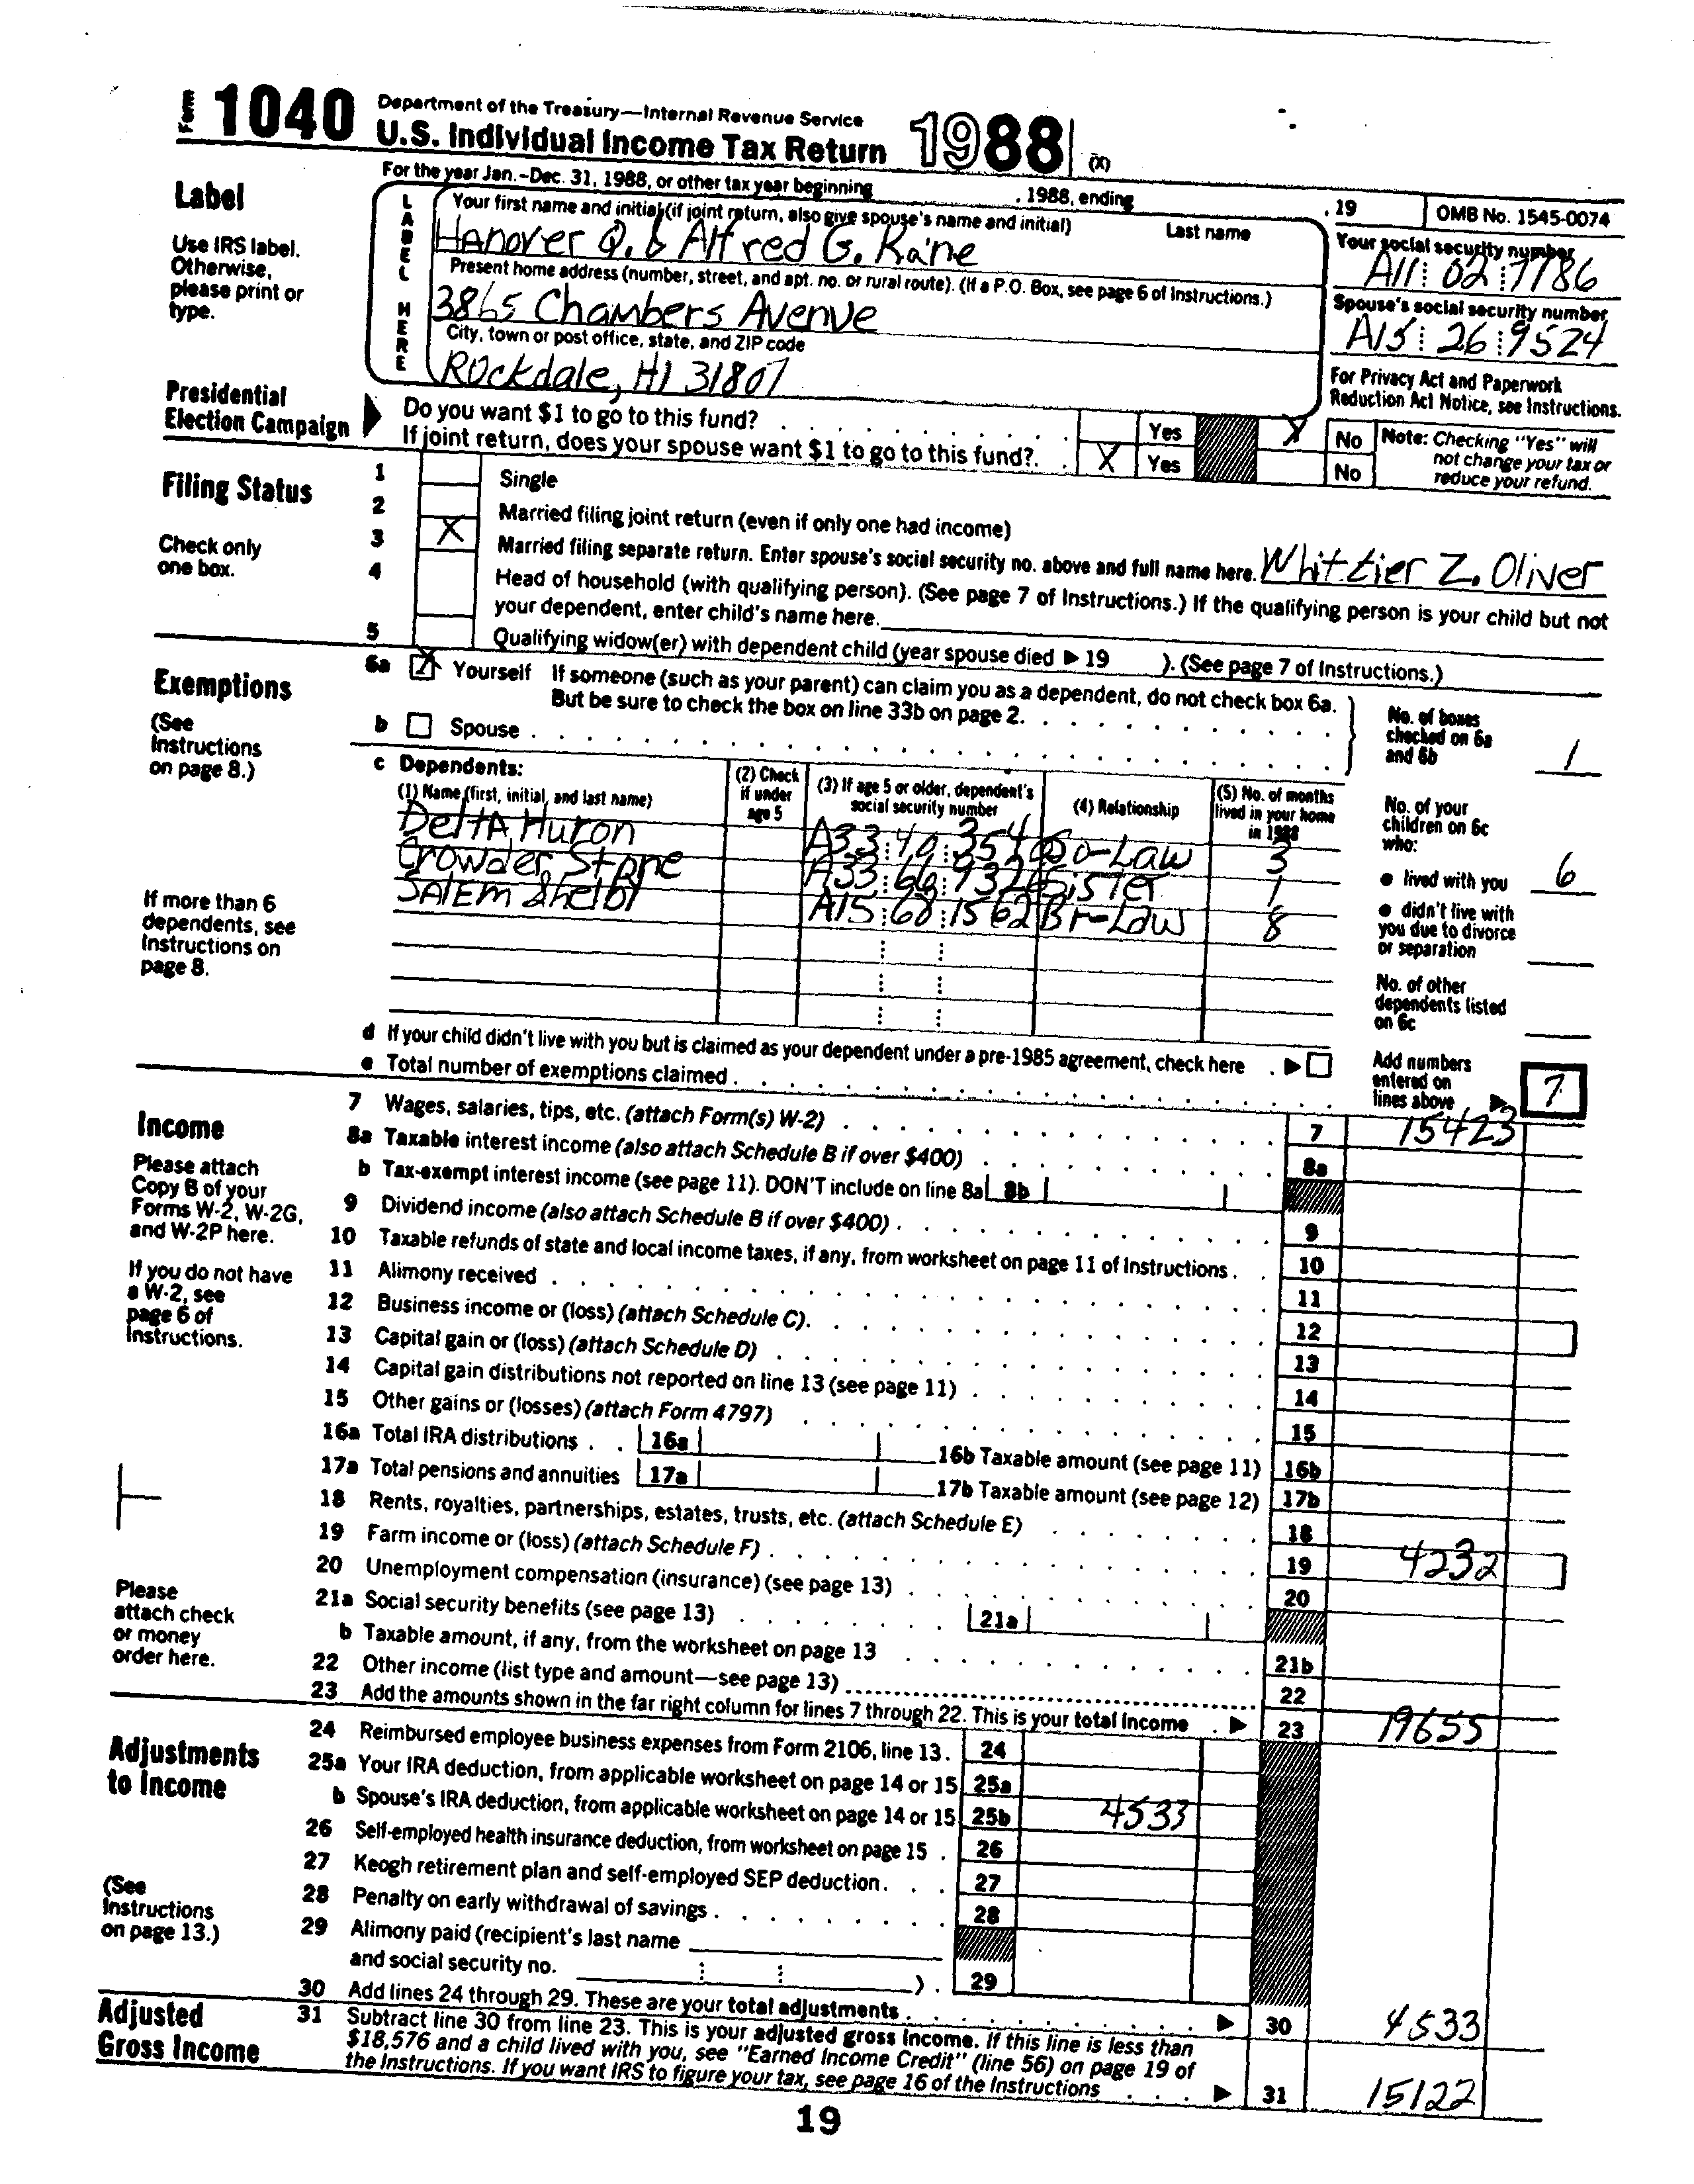 Form 1040 Department of the Treasury—Internal Revenue Service
U.S. Individual Income Tax Return 1988 (X)
For the year Jan.-Dec. 31, 1988, or other tax year beginning , 1988, ending , 19 OMB No. 1545-0074
Label
Use IRS label. Otherwise, please print or type.
LABEL HERE
Your first name and initial (if joint return, also give spouse's name and initial) Last name
Hanover Q. & Alfred G. Kane
Your social security number
A11 02 7186
Present home address (number, street, and apt. no. or rural route). (If a P.O. Box, see page 6 of Instructions.)
3865 Chambers Avenve
Spouse's social security number
A15 26 9524
City, town or post office, state, and ZIP code
Rockdale, HI 31807
For Privacy Act and Paperwork Reduction Act Notice, see Instructions.
Presidential Election Campaign
Do you want $1 to go to this fund? Yes X No
If joint return, does your spouse want $1 to go to this fund? X Yes No
Note: Checking "Yes" will not change your tax or reduce your refund.
Filing Status
Check only one box.
1 Single
2 Married filing joint return (even if only one had income)
3 X Married filing separate return. Enter spouse's social security no. above and full name here. Whittier Z. Oliver
4 Head of household (with qualifying person). (See page 7 of Instructions.) If the qualifying person is your child but not
your dependent, enter child's name here.
5 Qualifying widow(er) with dependent child (year spouse died ▶ 19 ). (See page 7 of Instructions.)
Exemptions
(See Instructions on page 8.)
6a X Yourself If someone (such as your parent) can claim you as a dependent, do not check box 6a.
But be sure to check the box on line 33b on page 2.
b Spouse
No. of boxes checked on 6a and 6b 1
c Dependents:
(1) Name (first, initial, and last name) (2) Check if under age 5 (3) If age 5 or older, dependent's social security number (4) Relationship (5) No. of months lived in your home in 1988
Delta Huron A33 40 354 So-Law 3
Crowder Stone A33 66 932 Sister 1
Salem Shelby A15 68 1562 Br-Law 8
If more than 6 dependents, see Instructions on page 8.
No. of your children on 6c who:
● lived with you 6
● didn't live with you due to divorce or separation
No. of other dependents listed on 6c
d If your child didn't live with you but is claimed as your dependent under a pre-1985 agreement, check here ▶
e Total number of exemptions claimed
Add numbers entered on lines above ▶ 7
Income
Please attach Copy B of your Forms W-2, W-2G, and W-2P here.
If you do not have a W-2, see page 6 of Instructions.
Please attach check or money order here.
7 Wages, salaries, tips, etc. (attach Form(s) W-2) 7 15423
8a Taxable interest income (also attach Schedule B if over $400) 8a
b Tax-exempt interest income (see page 11). DON'T include on line 8a 8b
9 Dividend income (also attach Schedule B if over $400) 9
10 Taxable refunds of state and local income taxes, if any, from worksheet on page 11 of Instructions 10
11 Alimony received 11
12 Business income or (loss) (attach Schedule C) 12
13 Capital gain or (loss) (attach Schedule D) 13
14 Capital gain distributions not reported on line 13 (see page 11) 14
15 Other gains or (losses) (attach Form 4797) 15
16a Total IRA distributions 16a 16b Taxable amount (see page 11) 16b
17a Total pensions and annuities 17a 17b Taxable amount (see page 12) 17b
18 Rents, royalties, partnerships, estates, trusts, etc. (attach Schedule E) 18
19 Farm income or (loss) (attach Schedule F) 19 4232
20 Unemployment compensation (insurance) (see page 13) 20
21a Social security benefits (see page 13) 21a
b Taxable amount, if any, from the worksheet on page 13 21b
22 Other income (list type and amount—see page 13) 22
23 Add the amounts shown in the far right column for lines 7 through 22. This is your total income ▶ 23 19655
Adjustments to Income
(See Instructions on page 13.)
24 Reimbursed employee business expenses from Form 2106, line 13 24
25a Your IRA deduction, from applicable worksheet on page 14 or 15 25a
b Spouse's IRA deduction, from applicable worksheet on page 14 or 15 25b 4533
26 Self-employed health insurance deduction, from worksheet on page 15 26
27 Keogh retirement plan and self-employed SEP deduction 27
28 Penalty on early withdrawal of savings 28
29 Alimony paid (recipient's last name
and social security no. ) 29
30 Add lines 24 through 29. These are your total adjustments ▶ 30 4533
Adjusted Gross Income
31 Subtract line 30 from line 23. This is your adjusted gross income. If this line is less than
$18,576 and a child lived with you, see "Earned Income Credit" (line 56) on page 19 of
the Instructions. If you want IRS to figure your tax, see page 16 of the Instructions ▶ 31 15122
19